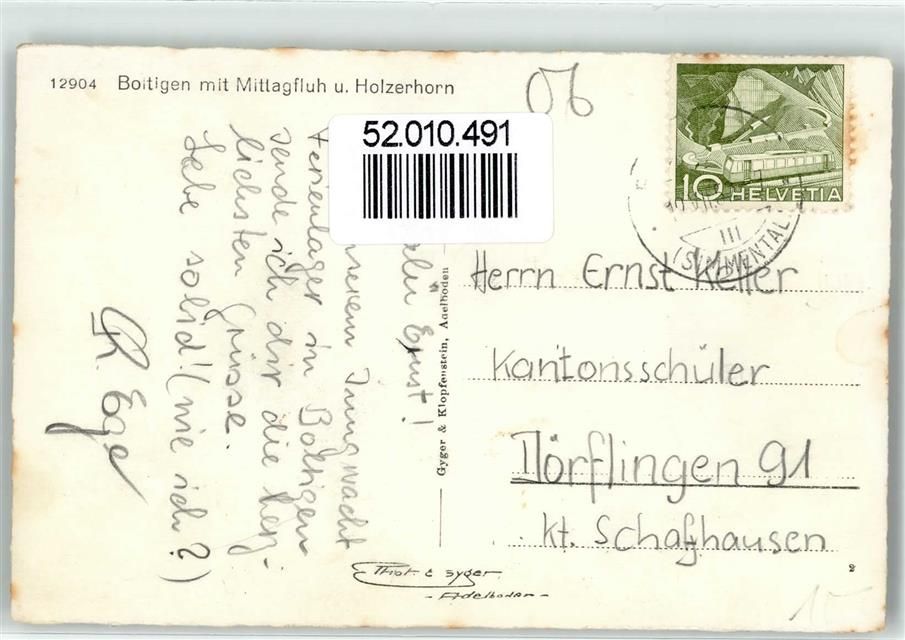 12904 Boltigen mit Mittagfluh u. Holzerhorn
06
52.010.491
10 HELVETIA
III
(SIMMENTAL)
Ernst!
unserem Jungwacht
Ferienlager in Boltigen
sende ich dir die herz-
lichsten Grüsse.
Lebe solid! (wie ich?)
R. Ege
Gyger & Klopfenstein, Adelboden
Herrn Ernst Keller
Kantonsschüler
Dörflingen 91
Kt. Schaffhausen
Phot. E. Gyger
- Adelboden -